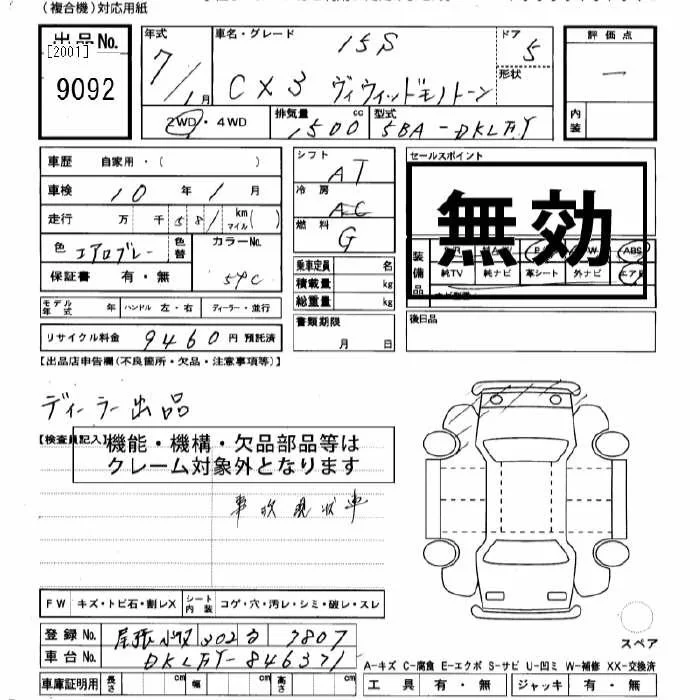 (複合機)対応用紙
出品No.
[2001]
9092
年式
7/1月
車名・グレード
15S
CX3 ヴィヴィッドモノトーン
ドア
5
形状
評価点
内装
2WD・4WD
排気量
1500 cc
型式
5BA-DKLFY
車歴 自家用・( )
車検 10年1月
走行 万 千 581 km マイル( )
色 エアログレー
色替
カラーNo.
59C
保証書 有・無
シフト
AT
冷房
AC
燃料
G
セールスポイント
無効
装備品
ABS
純TV 純ナビ 革シート 外ナビ エアB
乗車定員 名
積載量 kg
総重量 kg
モデル年式 年 ハンドル 左・右 ディーラー・並行
リサイクル料金 9460円 預託済
書類期限
月 日
後日品
【出品店申告欄(不良箇所・欠品・注意事項等)】
ディーラー出品
【検査員記入】
機能・機構・欠品部品等は
クレーム対象外となります
事故現状車
FW キズ・トビ石・割レX シート内装 コゲ・穴・汚レ・シミ・破レ・スレ
スペア
登録No. 尾張小牧 302 7807
車台No. DKLFY-846371
A-キズ C-腐食 E-エクボ S-サビ U-凹ミ W-補修 XX-交換済
車庫証明用 長さ cm 幅 cm 高さ cm
工具 有・無 ジャッキ 有・無